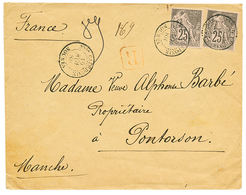 France
169
R
25 25
Madame Veuve Alphonse Barbé
Propriétaire
à
Pontorson
Manche.